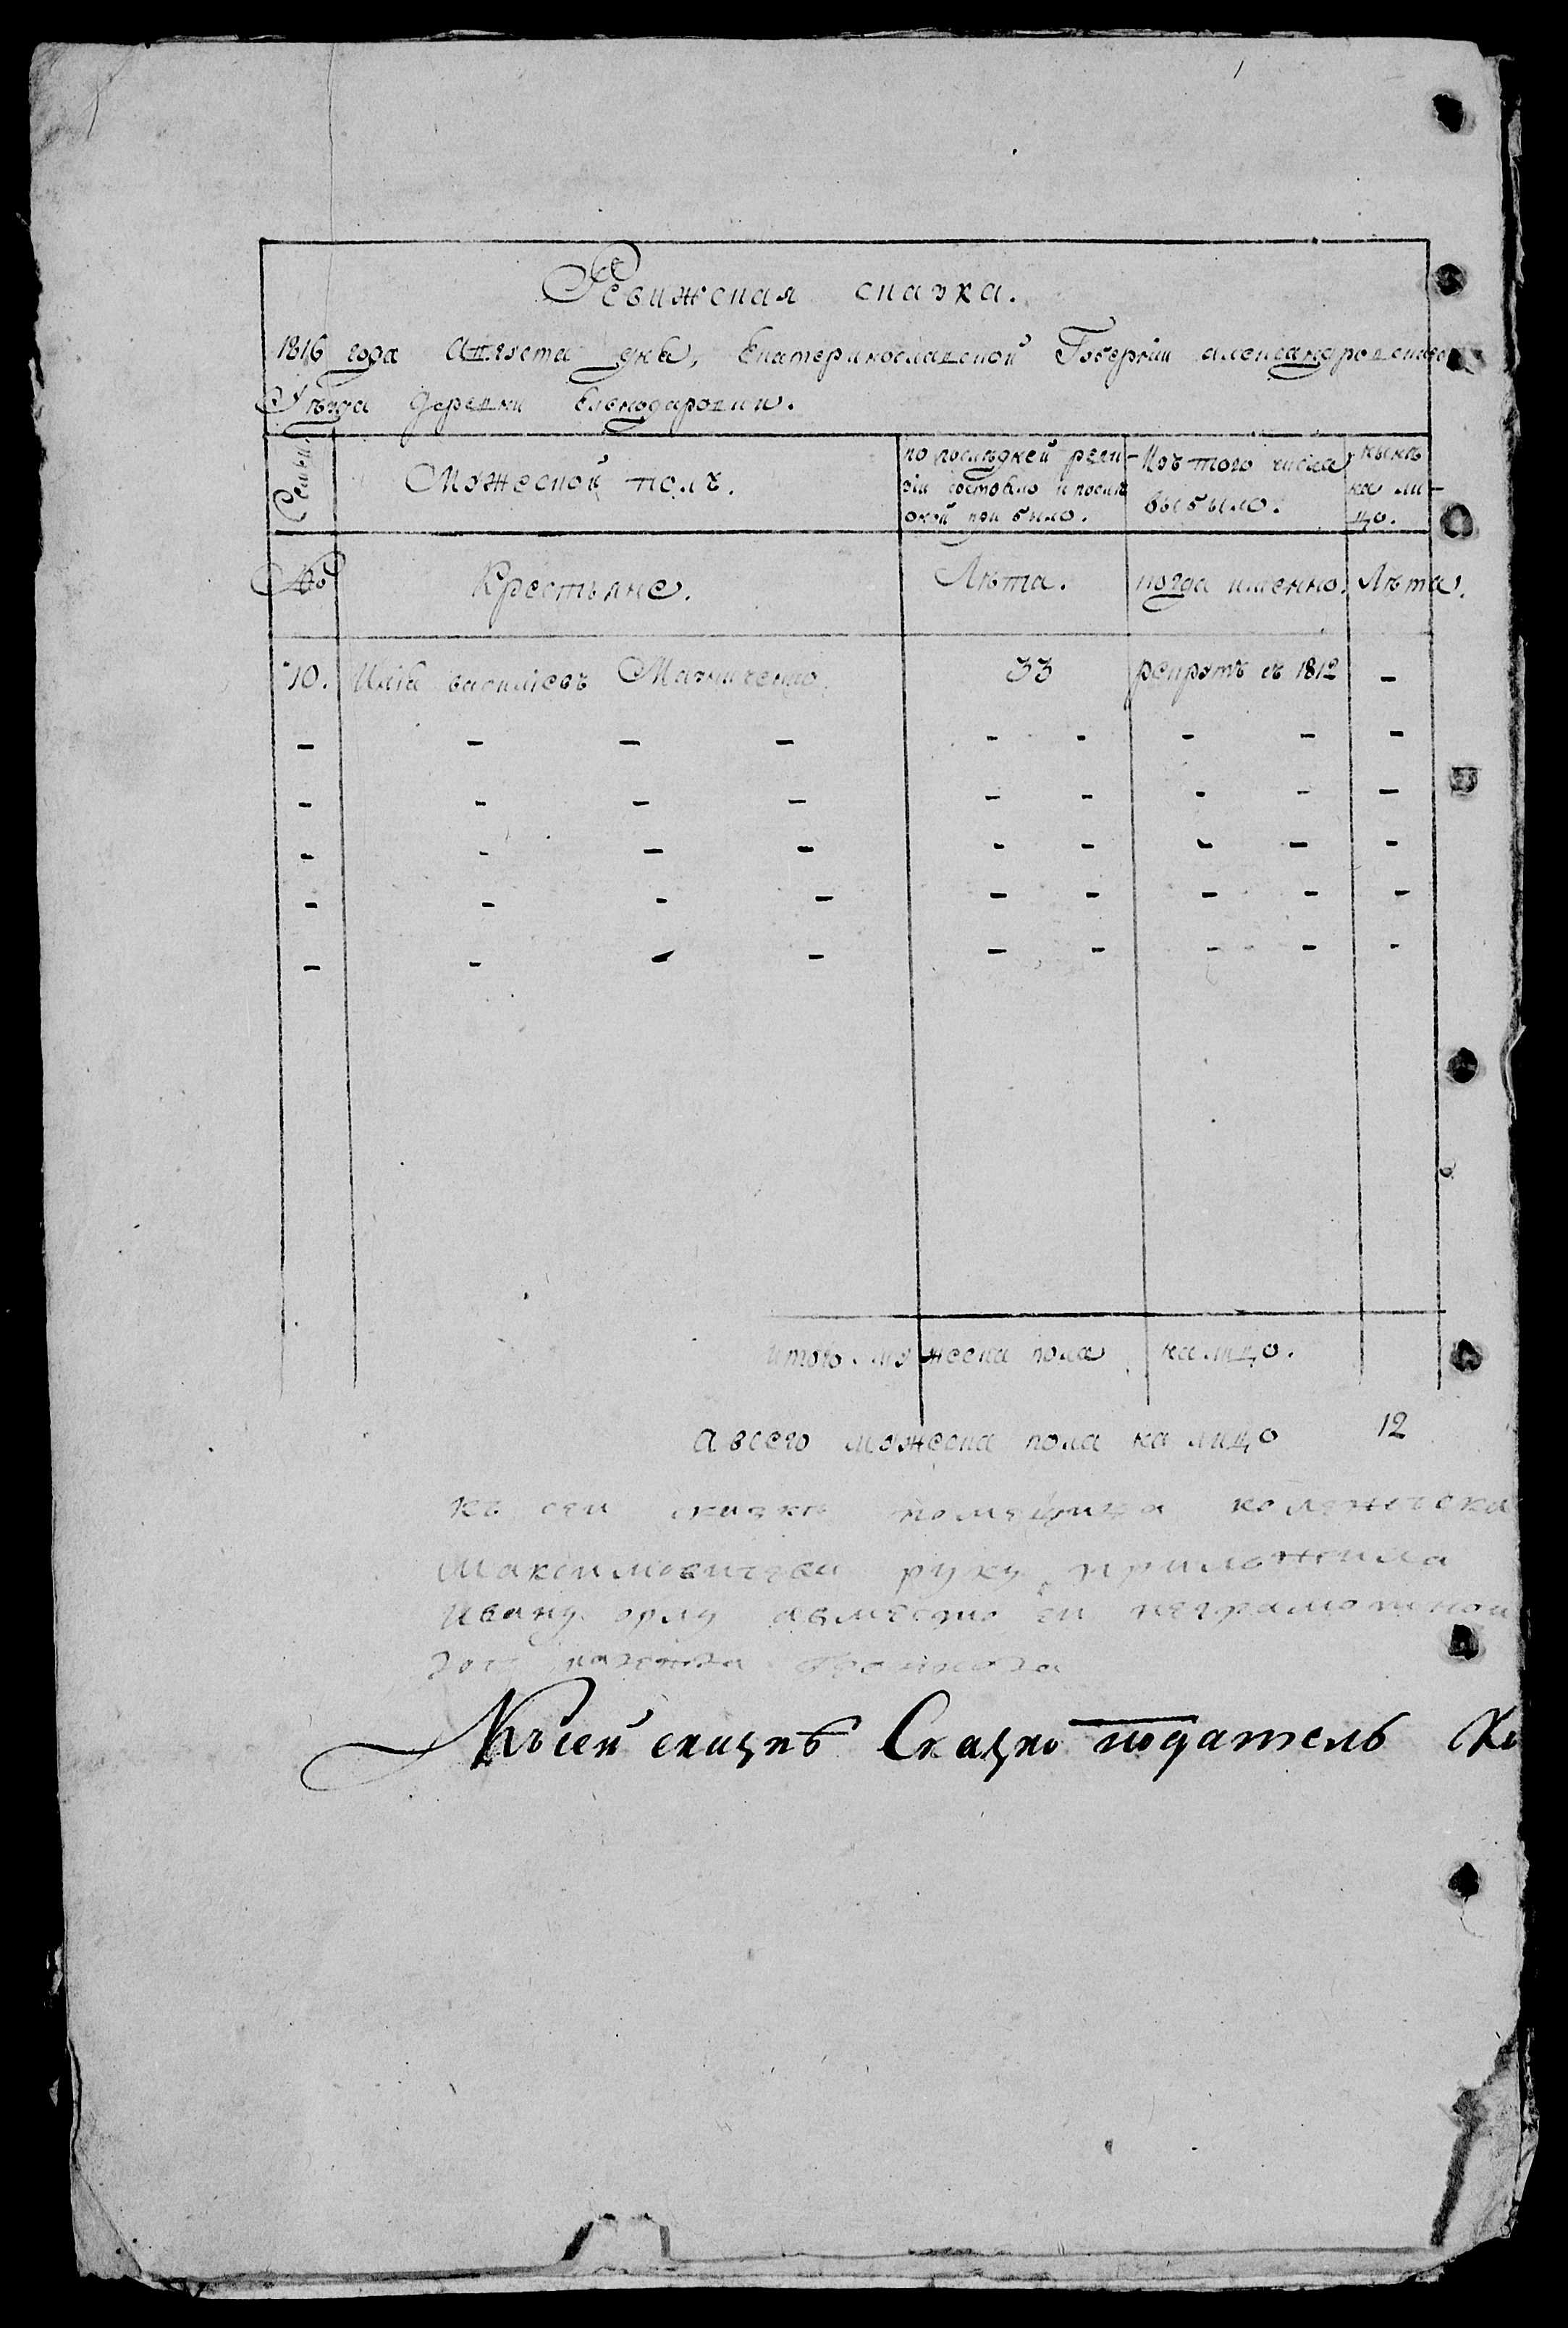 Ревижская сказка.
1816 года Августа дня, Екатеринославской Губернии александровского
Уезда деревни Еленодаровки.
Семьи
Мужеской полъ.
по последней реви-
зiи состояло и после
оной при было.
Изъ того числа
выбыло.
ныне
на ли-
цо.
№
Крестьяне.
Лѣта.
когда именно.
Лѣта.
10. Илiя васильевъ 33 рекрутъ въ 1812 -
- - - - - - - - -
- - - - - - - - -
- - - - - - - - -
- - - - - - - - -
- - - - - - - - -
итого мужеска пола на лицо.
а всего мужеска пола на лицо 12
къ сеи сказке помещица
руку приложила
Ивану вместо еи неграмотной
Къ сей сказкѣ Сказко податель